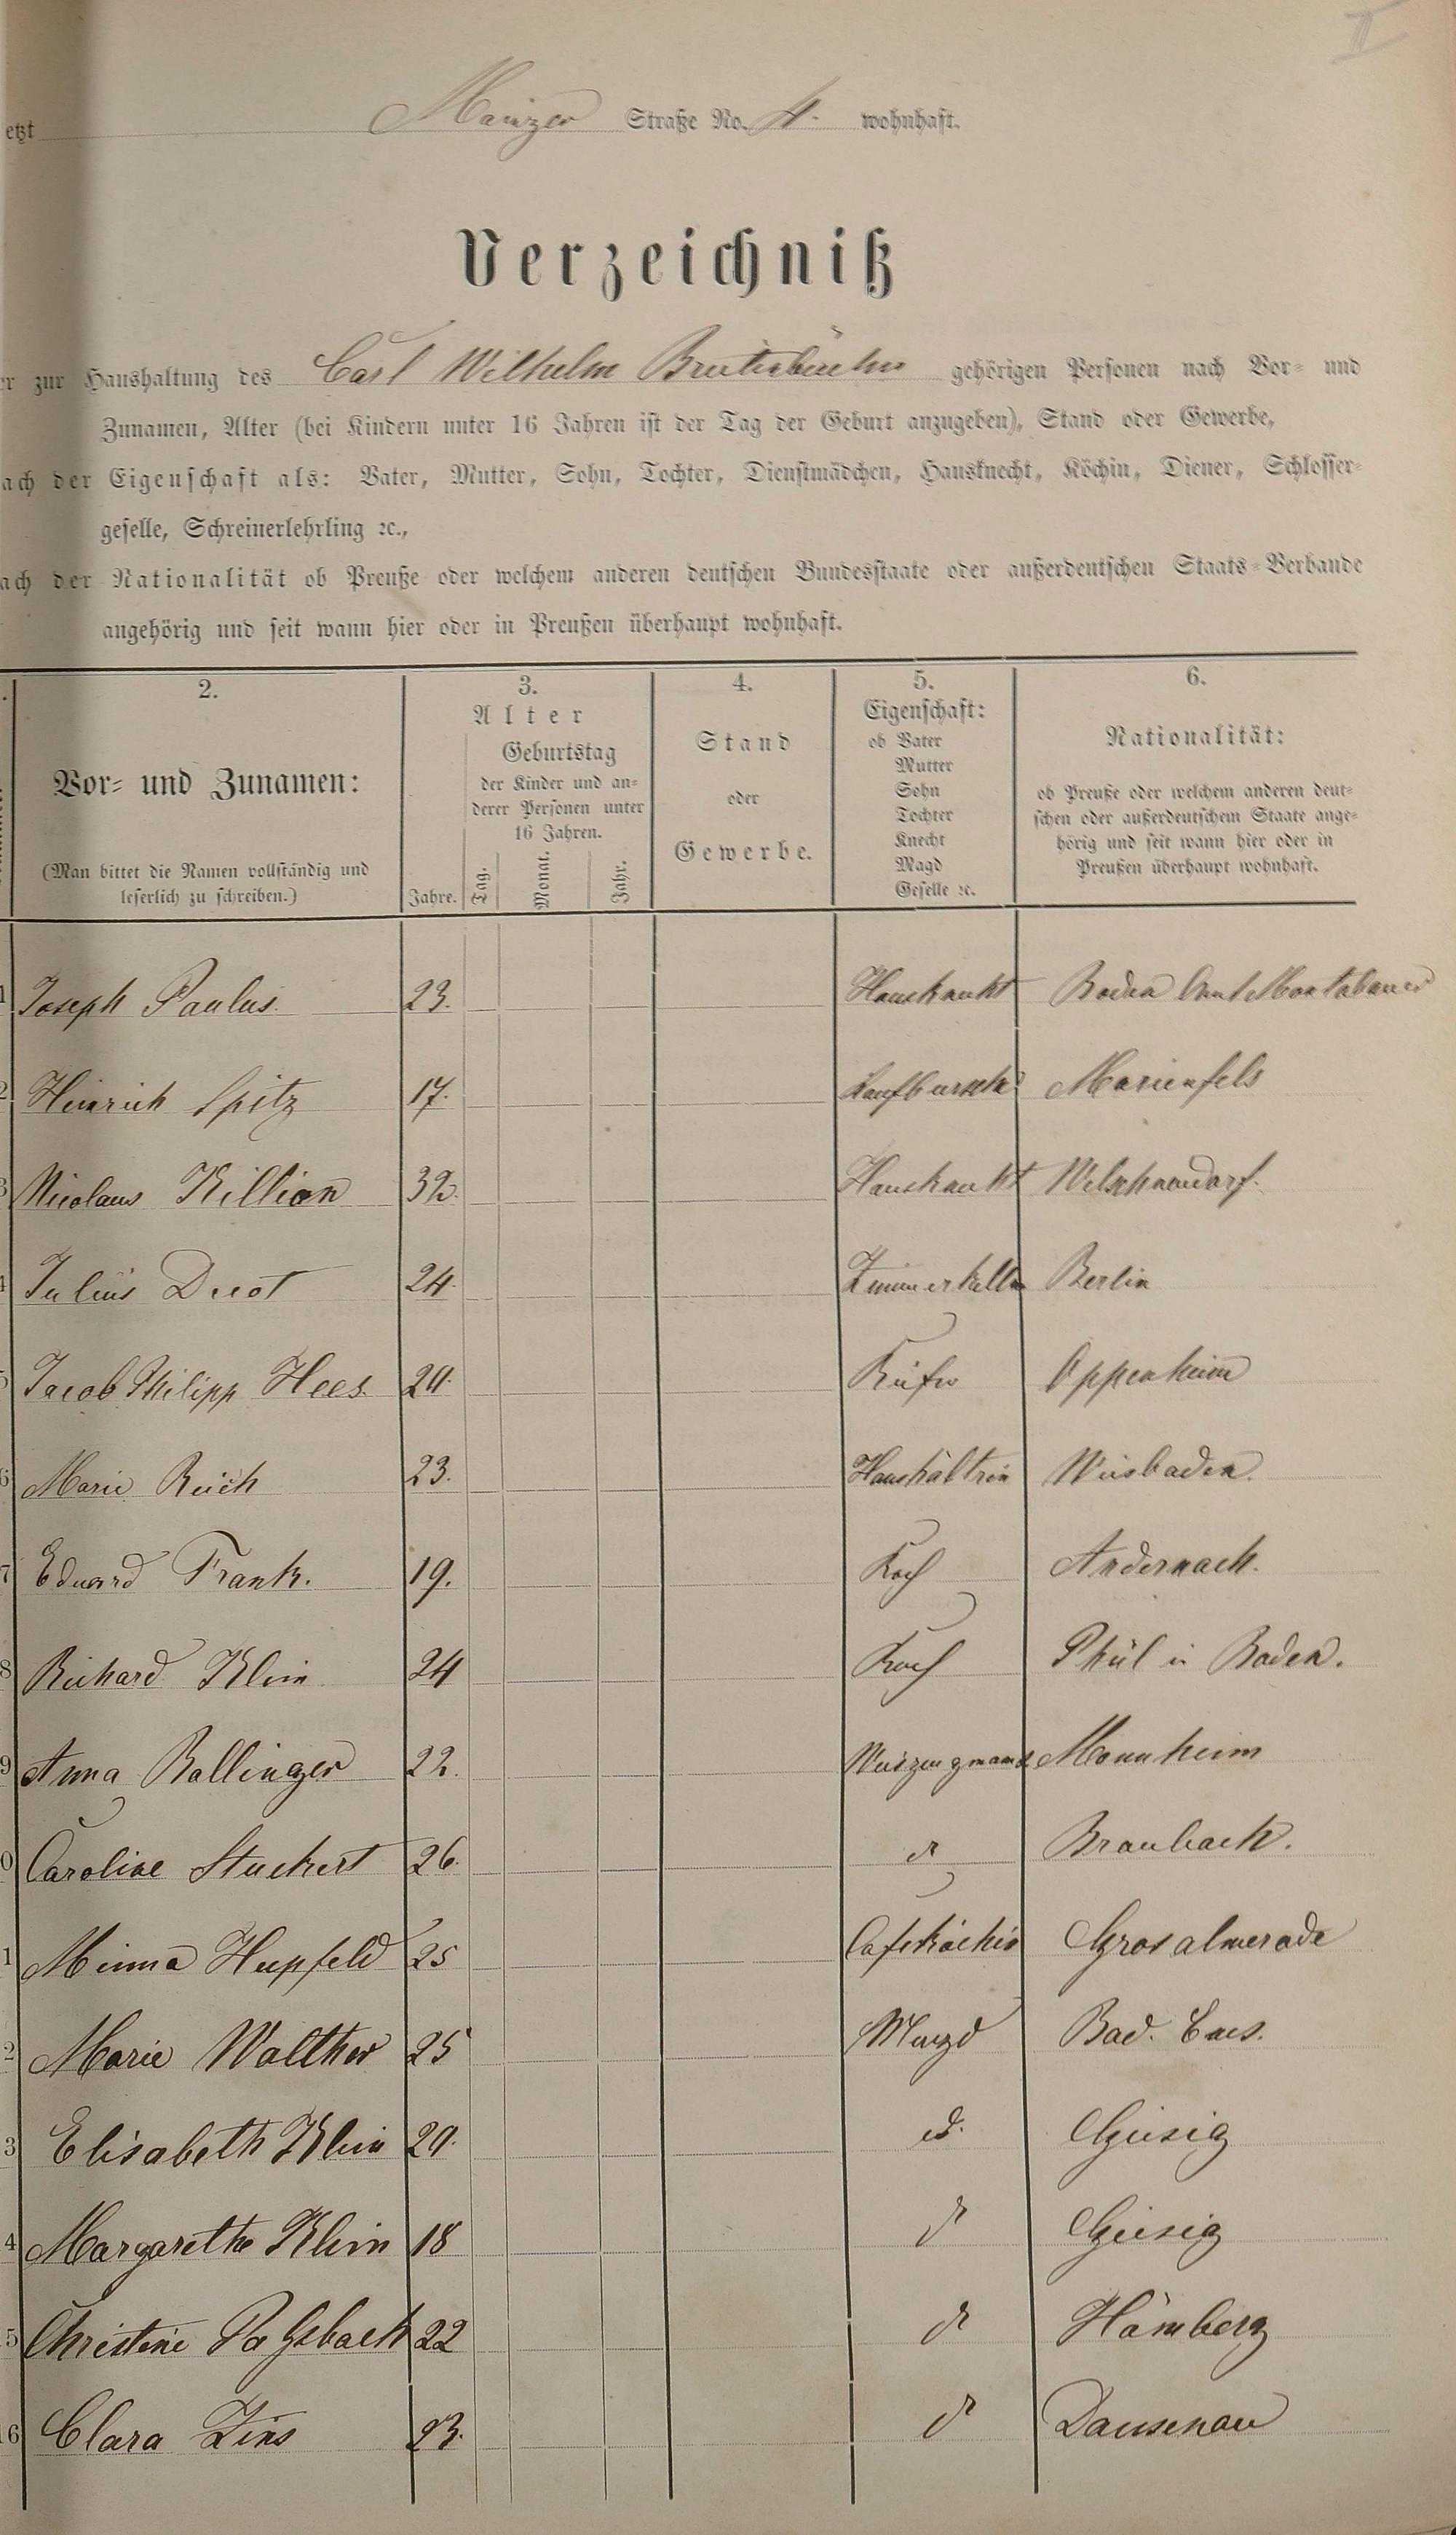 II
etzt Mainzer Straße No. 4. wohnhaft.
Verzeichniß
er zur Haushaltung des Carl Wilhelm gehörigen Personen nach Vor- und
Zunamen, Alter (bei Kindern unter 16 Jahren ist der Tag der Geburt anzugeben), Stand oder Gewerbe,
ach der Eigenschaft als: Vater, Mutter, Sohn, Tochter, Dienstmädchen, Hausknecht, Köchin, Diener, Schlosser-
geselle, Schreinerlehrling ꝛc.,
ach der Nationalität ob Preuße oder welchem anderen deutschen Bundesstaate oder außerdeutschen Staats-Verbande
angehörig und seit wann hier oder in Preußen überhaupt wohnhaft.
2.
Vor- und Zunamen:
(Man bittet die Namen vollständig und
leserlich zu schreiben.)
3.
Alter
Jahre.
Geburtstag
der Kinder und an-
derer Personen unter
16 Jahren.
Tag. Monat. Jahr.
4.
Stand
oder
Gewerbe.
5.
Eigenschaft:
ob Vater
Mutter
Sohn
Tochter
Knecht
Magd
Geselle ꝛc.
6.
Nationalität:
ob Preuße oder welchem anderen deut-
schen oder außerdeutschem Staate ange-
hörig und seit wann hier oder in
Preußen überhaupt wohnhaft.
1 Joseph Paulus. 23. Hausknecht Boden Amt Montabauer
2 Heinrich Spitz 17. Laufbursche Marienfels
3 Nicolaus Killian 32. Hausknecht Welschneudorf.
4 Julius 24. Zimmerkelln Berlin
5 Jacob Philipp Hees. Küfer Oppenheim
6 Marie Reich 23. Haushältrin Wiesbaden.
7 Eduard Frank. 19. Koch Andernach.
8 Richard Klein. 24 Koch in Baden.
9 Anna Ballinger 22. Mannheim
0 Caroline Stuckert 26. d Braubach.
1 Minna Hupfeld 25 Cafeköchin Grosalmerode
2 Marie Walther 25 Magd Bad. Ems.
3 Elisabeth Klein d. Giesig
4 Margarethe Klein 18 d Giesig
5 Christine 22 d Hömberg
16 Clara Zins 23. d Dausenau